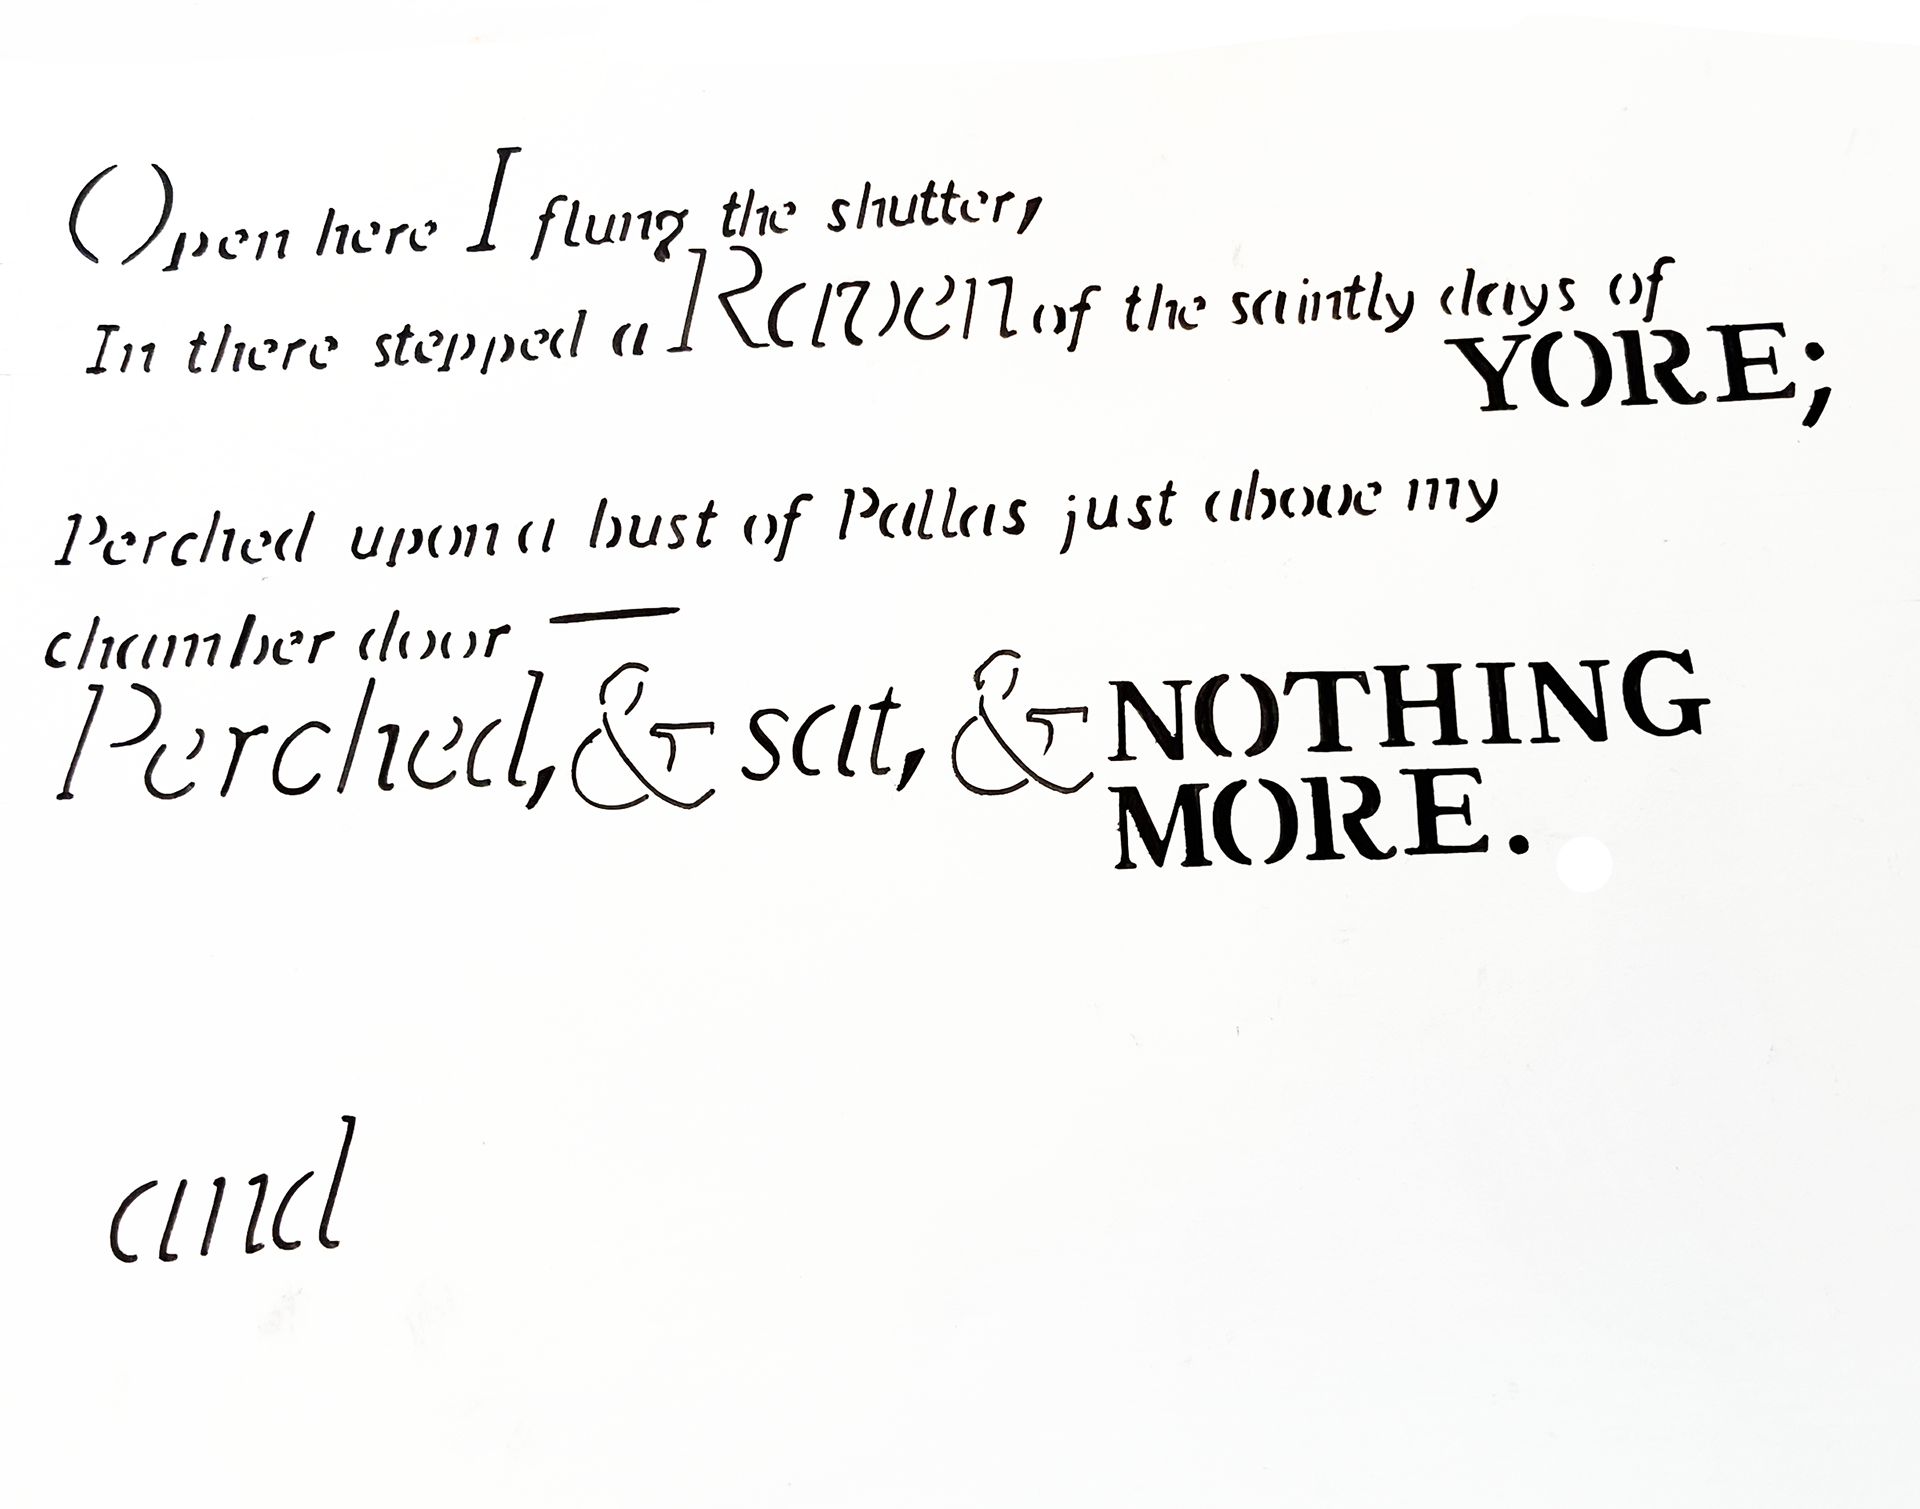 Open here I flung the shutter,
In there stepped a Raven of the saintly days of
YORE;
Perched upon a bust of Pallas just above my
chamber door —
Perched, & sat, & NOTHING
MORE.
and